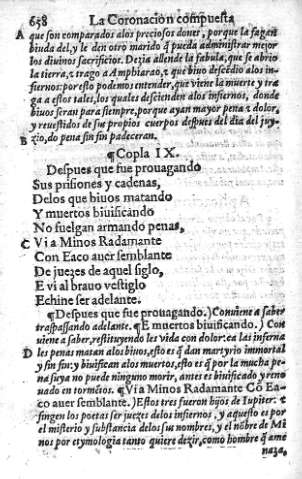 658 La Coronacion compuesta
A que son comparados alos preciosos dones, porque la fagan
biuda del, y le den otro marido q̃ pueda administrar mejor
los diuinos sacrificios. Dezia allende la fabula, que se abrio
la tierra, z trago a Amphiarao, z que biuo descẽdio alos in-
fiernos: por esto podemos entender, que viene la muerte y tra
ga a estos tales, los quales descienden alos infiernos, donde
biuos seran para siempre, porque ayan mayor pena z dolor,
y reuestidos de sus propios cuerpos despues del dia del juy-
B zio, do pena sin fin padeceran.
¶Copla IX.
Despues que fue prouagando
Sus prisiones y cadenas,
Delos que biuos matando
Y muertos biuificando
No fuelgan armando penas,
C Vi a Minos Radamante
Con Eaco auer semblante
De juezes de aquel siglo,
E vi al brauo vestiglo
Echine ser adelante.
¶Despues que fue prouagando.) Conuiene a saber
traspassando adelante. ¶E muertos biuificando.) Con
uiene a saber, restituyendo les vida con dolor: ca las inferna
D les penas matan alos biuos, esto es q̃ dan martyrio immortal
y sin fin: y biuifican alos muertos, esto es q̃ por la mucha pe-
na suya no puede ninguno morir, antes es biuificado y reno
uado en tormẽtos. ¶Vi a Minos Radamante Cõ Ea-
co auer semblante.) Estos tres fueron hijos de Iupiter: z
fingen los poetas ser juezes delos infiernos, y aquesto es por
el misterio y substancia delos sus nombres, y el nõbre de Mi
nos por etymologia tanto quiere dezir, como hombre q̃ ame
naza,